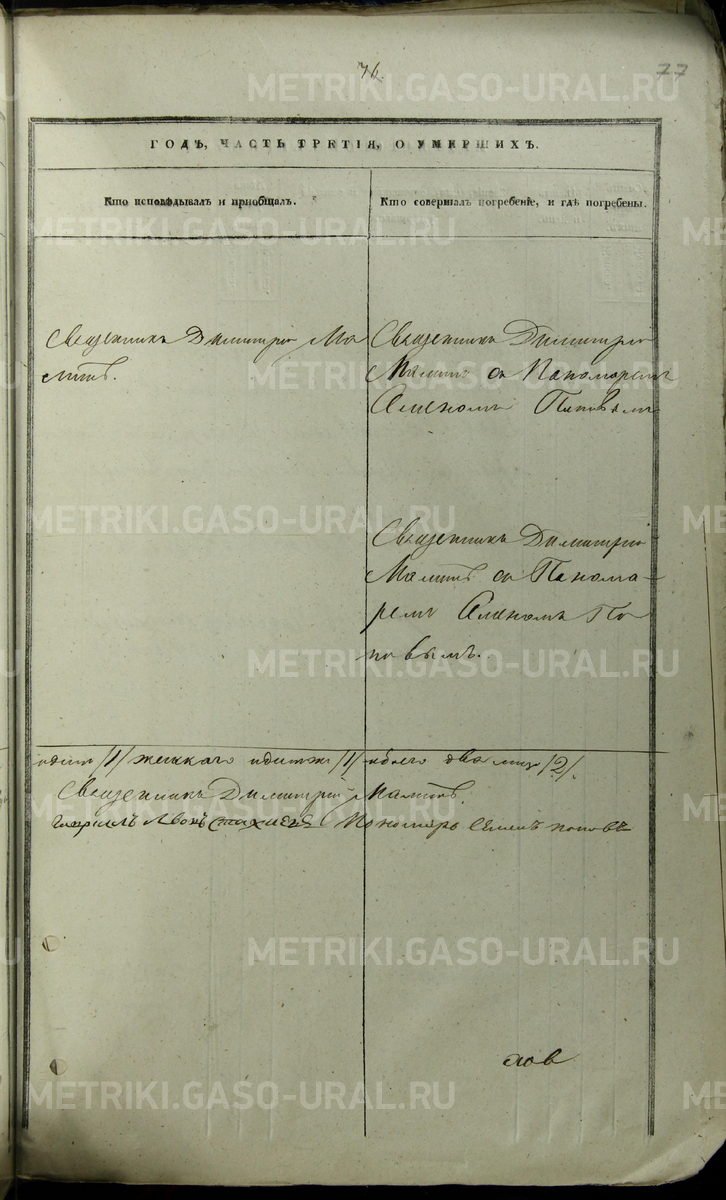 76.
77
ГОДЪ, ЧАСТЬ ТРЕТІЯ, О УМЕРШИХЪ.
Кто исповѣдывалъ и приобщалъ.
Кто совершалъ погребеніе, и гдѣ погребены.
Священникъ Димитрій Ма
минъ.
Священникъ Димитрій
Маминъ съ Пономаремъ
Симеономъ Поповымъ
Священникъ Димитрій
Маминъ съ Понома-
ремъ Симеономъ По
повымъ.
одинъ /1/ женскаго одинже /1/ обоего два лица /2/.
Священникъ Димитрій Маминъ.
Пономарь Семенъ поповъ
METRIKI.GASO-URAL.RU